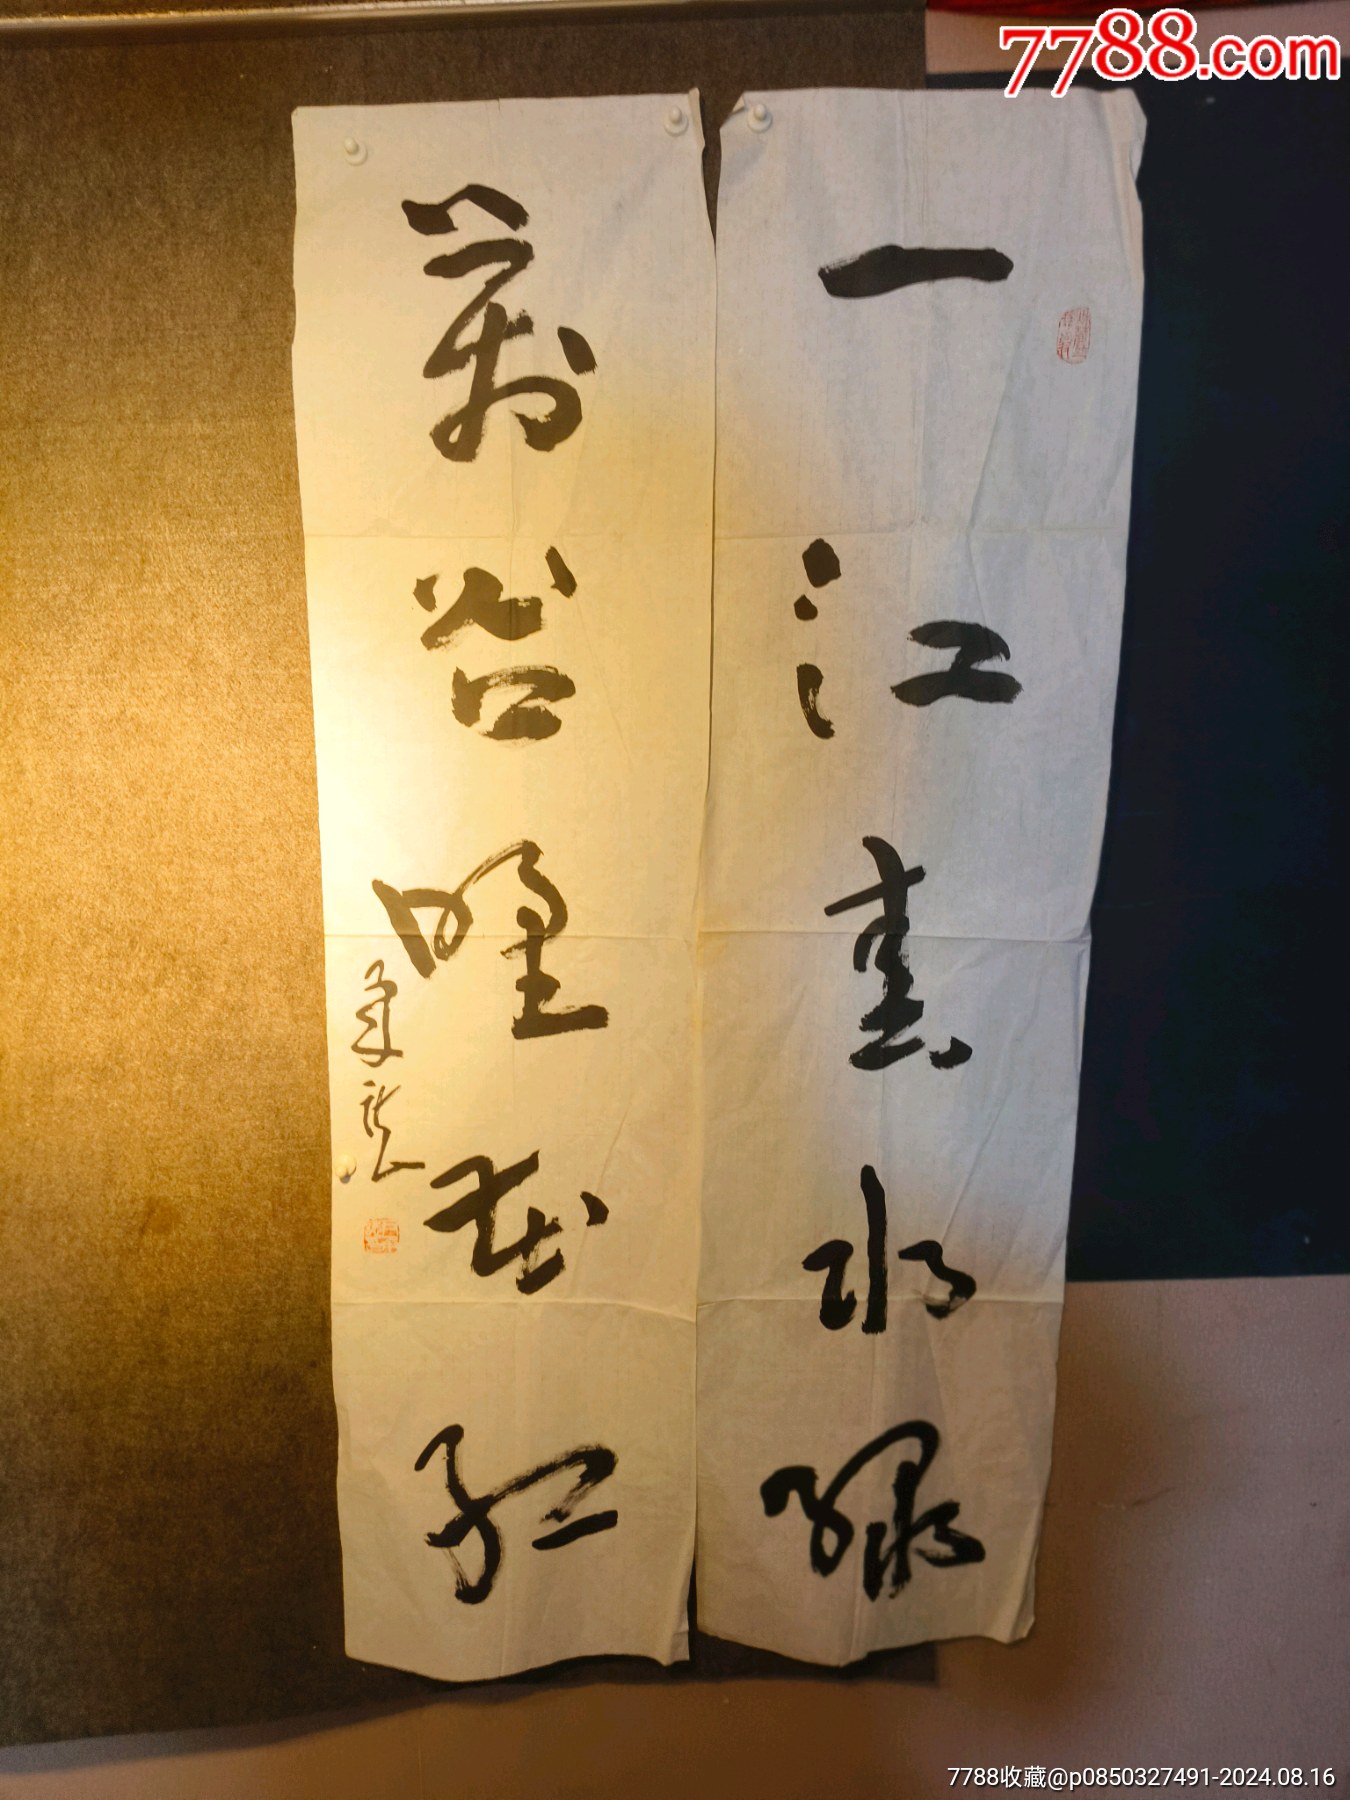 7788.com
一江春水緑
萬谷花紅
7788收藏@p0850327491-2024.08.16